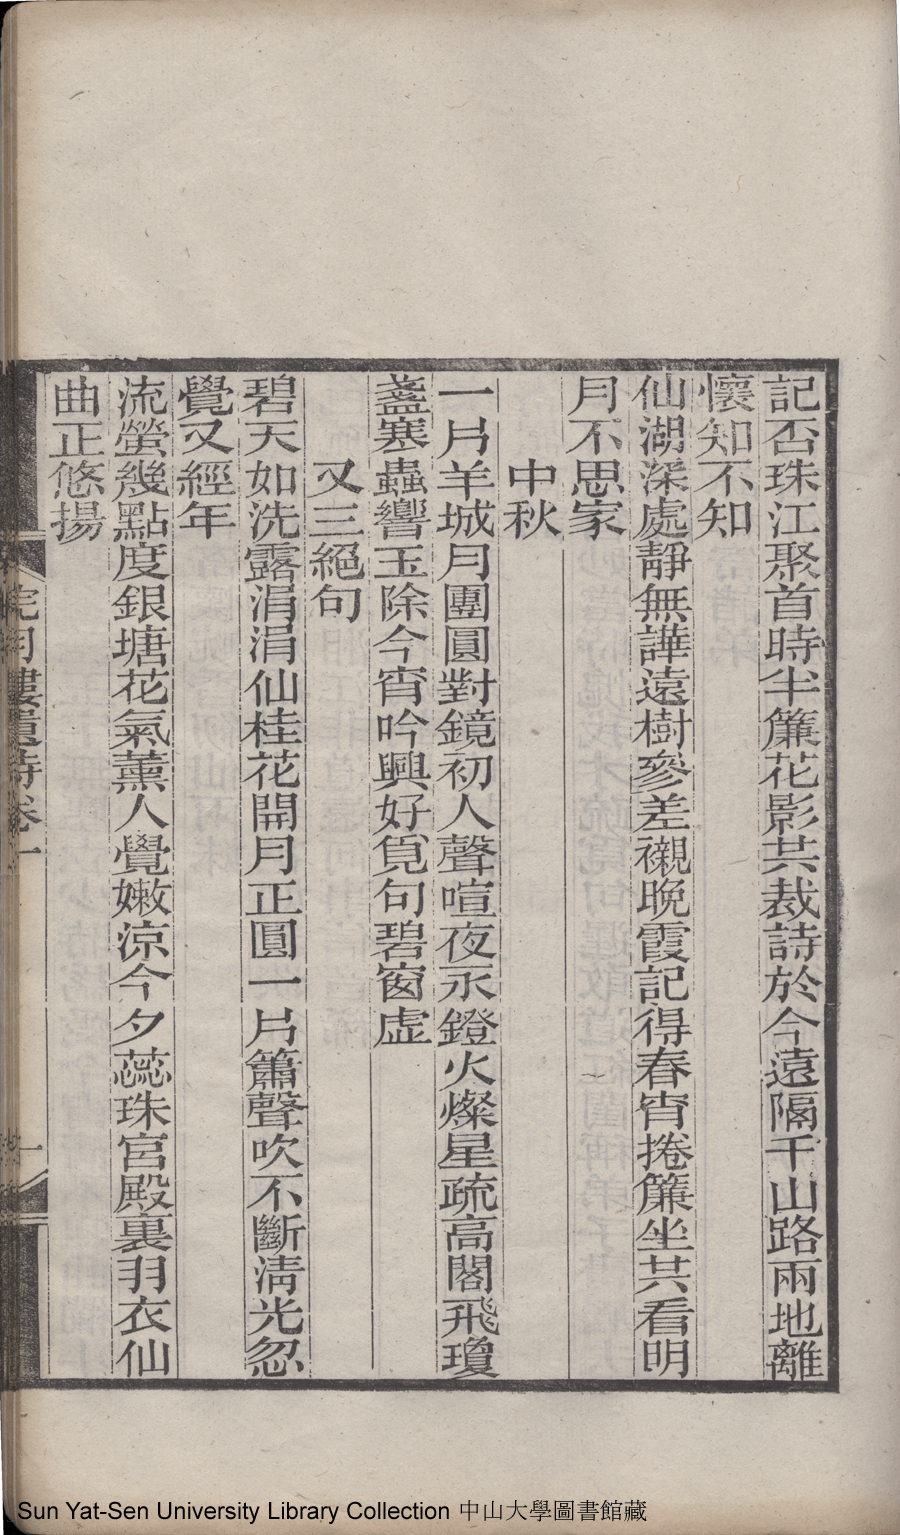 記否珠江聚首時半簾花影共裁詩於今遠隔千山路兩地離
懷知不知
仙湖深處靜無譁遠樹參差襯晚霞記得春宵捲簾坐共看明
月不思家
中秋
一片羊城月團圓對鏡初人聲喧夜永鐙火燦星疏高閣飛瓊
盞寒蟲響玉除今宵吟興好覓句碧窗虛
又三絕句
碧天如洗露涓涓仙桂花開月正圓一片簫聲吹不斷淸光忽
覺又經年
流螢幾點度銀塘花氣薰人覺嫩涼今夕蕊珠宮殿裏羽衣仙
曲正悠揚
月樓遺詩卷一
Sun Yat-Sen University Library Collection 中山大學圖書館藏